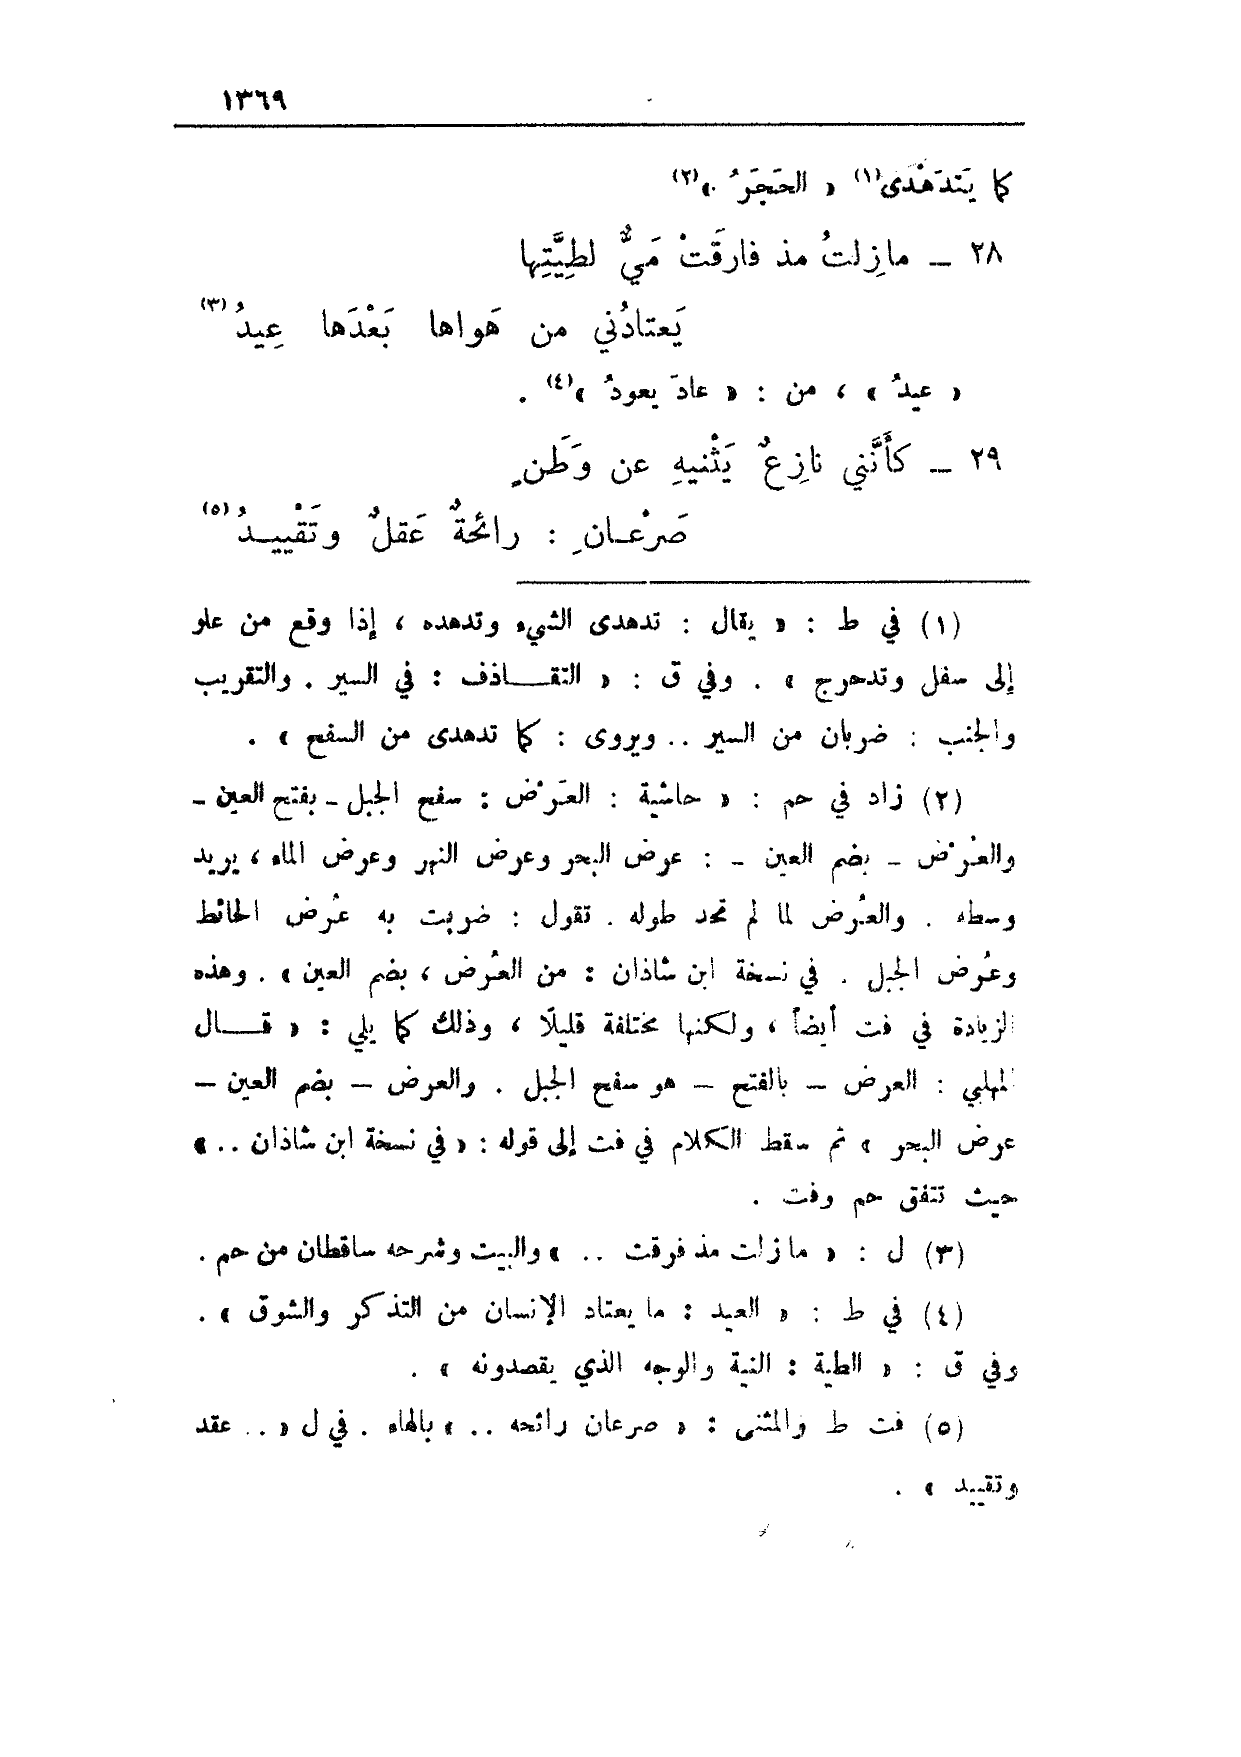 ١٣٦٩
كما يَتَدَهْدى(١) « الحَجَرُ »(٢)
٢٨ ــ مازِلتُ مذ فارقَتْ مَيٌّ لطِيَّتِها
يَعتادُني من هَواها بَعْدَها عِيدُ(٣)
« عيدُ » ، من : « عادَ يعودُ »(٤) .
٢٩ ــ كأَنَّني نازِعٌ يَثْنيهِ عن وَطَنٍ
صَرْعـانِ : رائحةٌ عَقلٌ وتَقْييـدُ(٥)
(١) في ط : « يقال : تدهدى الشيء وتدهده ، إذا وقع من علو
إلى سفل وتدحرج » . وفي ق : « التقــاذف : في السير . والتقريب
والجنب : ضربان من السير .. ويروى : كما تدهدى من السفح » .
(٢) زاد في حم : « حاشية : العَرْض : سفح الجبل ـ بفتح العين ـ
والعُرْض ـ بضم العين ـ : عرض البحر وعرض النهر وعرض الماء ، يريد
وسطه . والعُرض لما لم تحد طوله . تقول : ضربت به عُرض الحائط
وعُرض الجبل . في نسخة ابن شاذان : من العُرض ، بضم العين » . وهذه
الزيادة في فت أيضاً ، ولكنها مختلفة قليلًا ، وذلك كما يلي : « قــال
المهلبي : العرض ــ بالفتح ــ هو سفح الجبل . والعرض ــ بضم العين ــ
عرض البحر » ثم سقط الكلام في فت إلى قوله : « في نسخة ابن شاذان .. »
حيث تتفق حم وفت .
(٣) ل : « مازلت مذ فرقت .. » والبيت وشرحه ساقطان من حم .
(٤) في ط : « العيد : ما يعتاد الإنسان من التذكر والشوق » .
وفي ق : « الطية : النية والوجه الذي يقصدونه » .
(٥) فت ط والمثنى : « صرعان رائحه .. » بالهاء . في ل « .. عقد
وتقييد » .